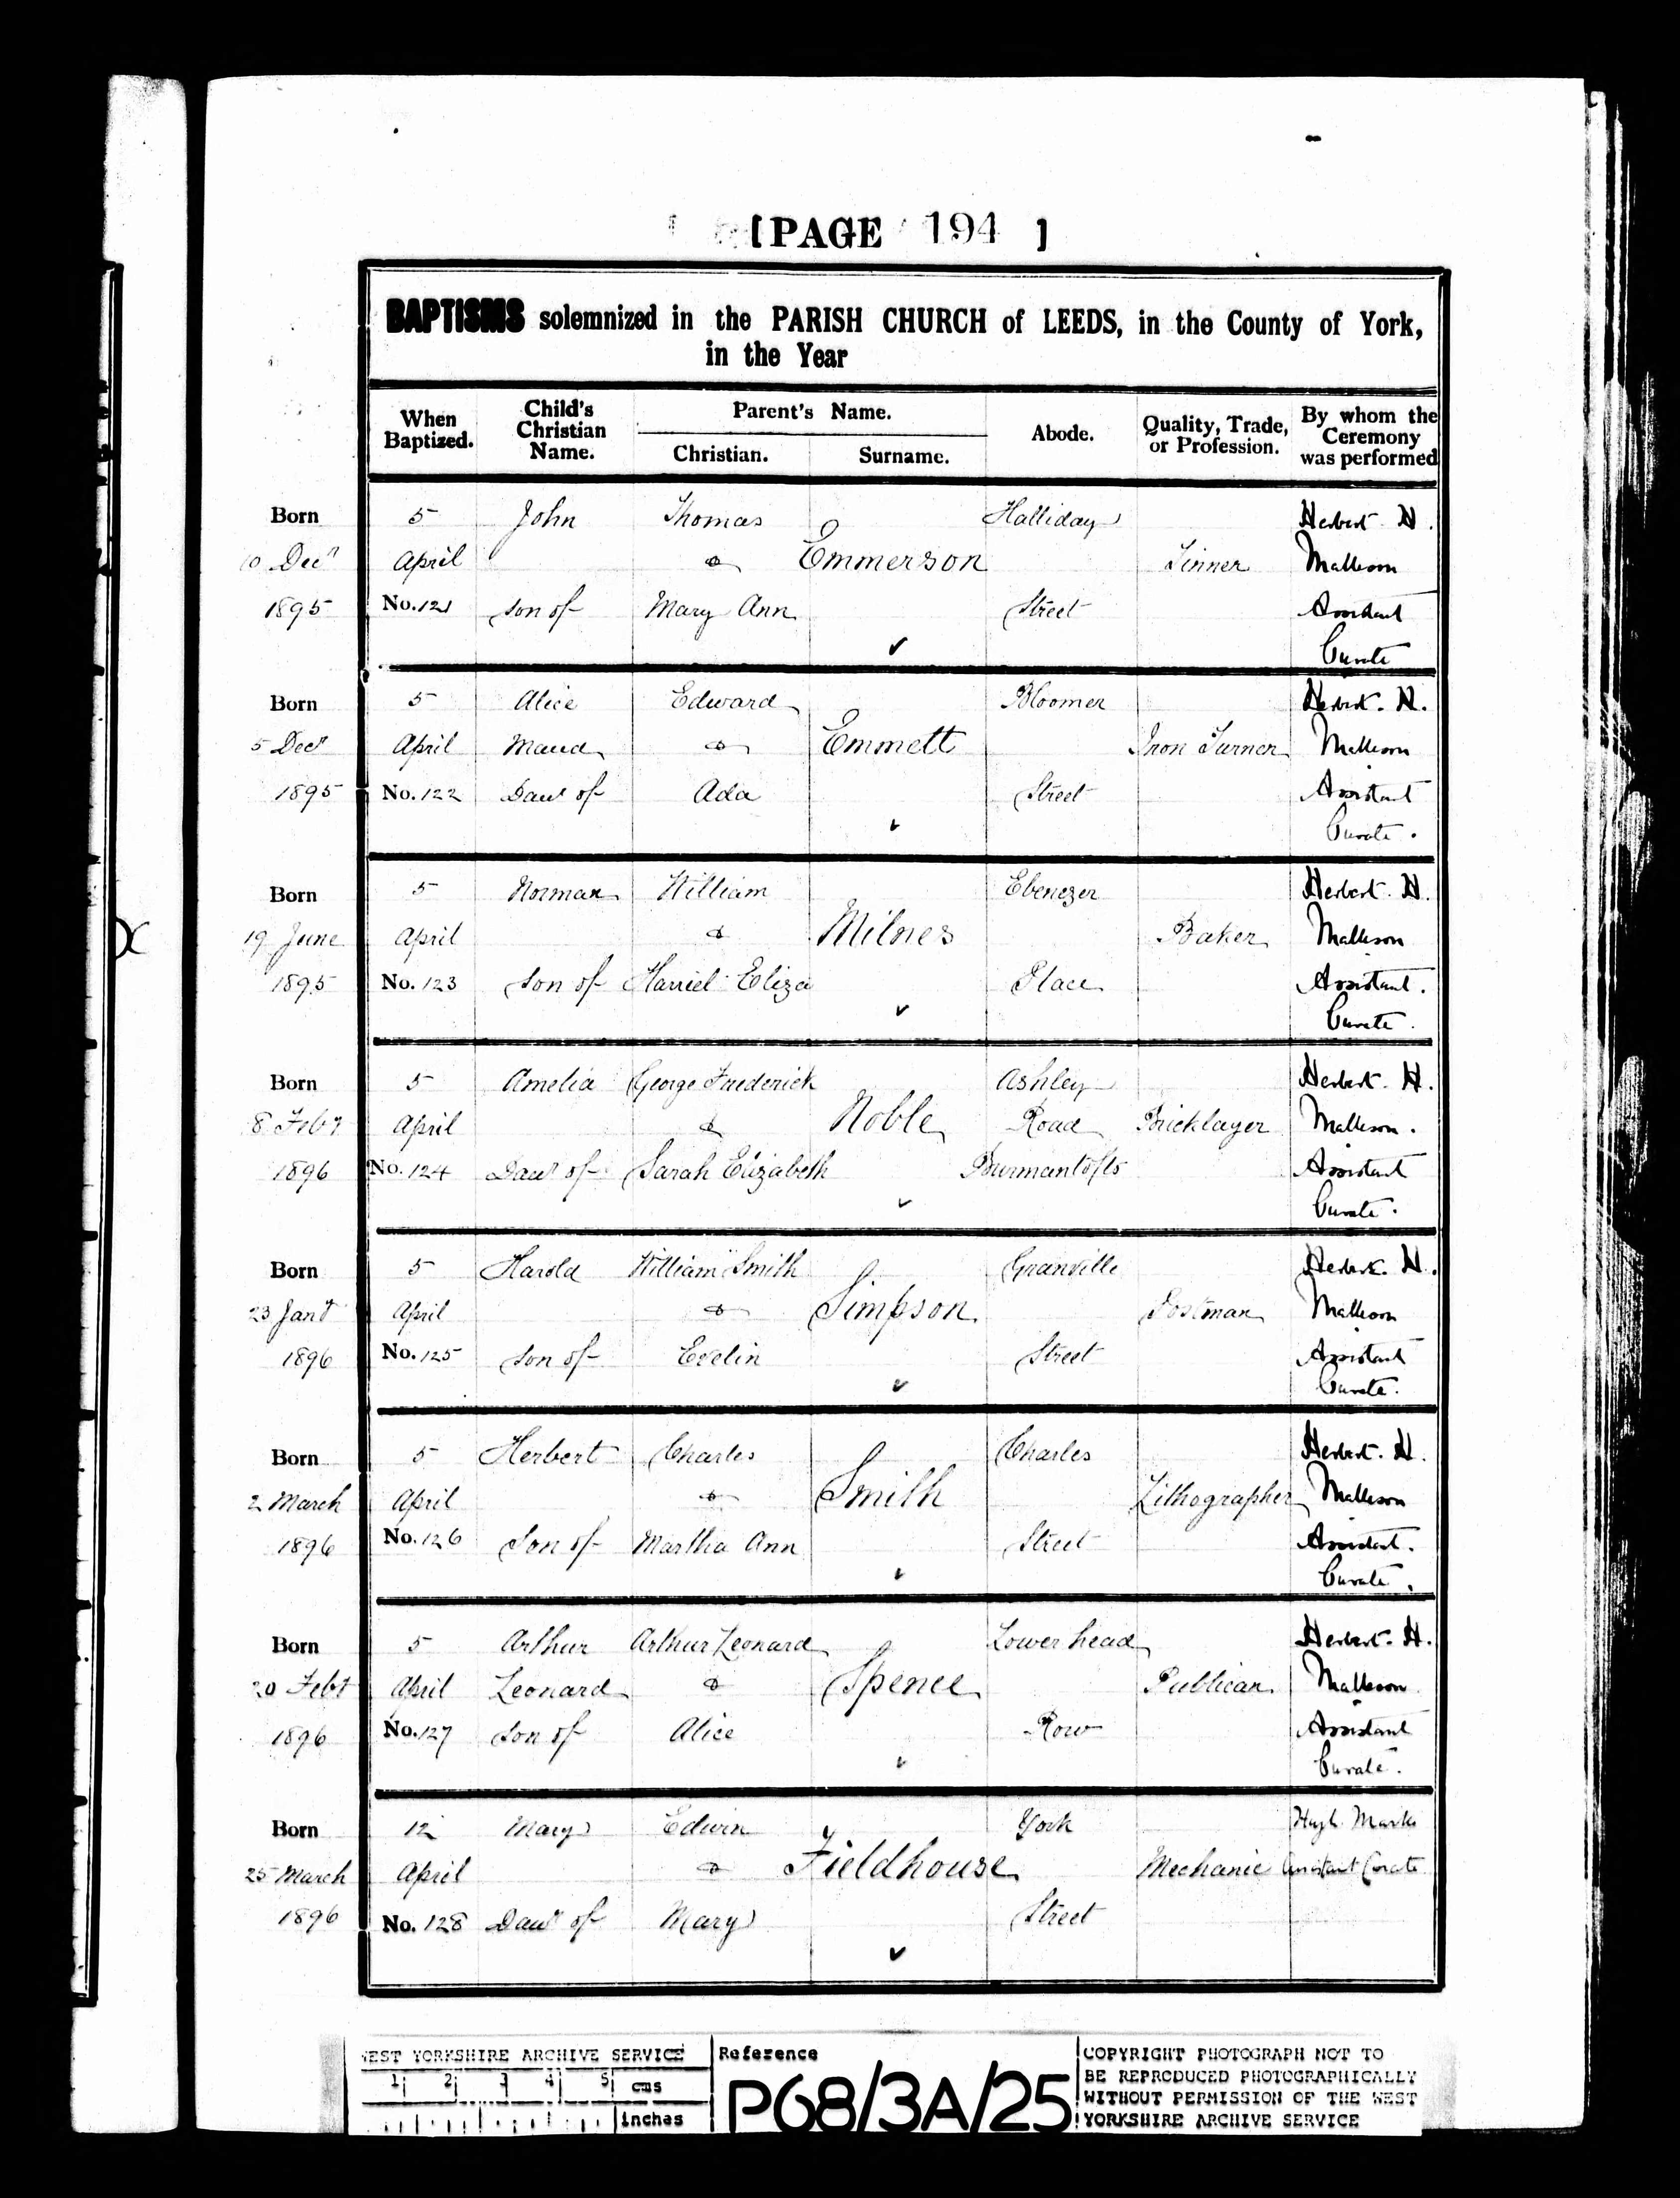 [PAGE 194 ]
BAPTISMS solemnized in the PARISH CHURCH of LEEDS, in the County of York,
in the Year
When Baptized. Child's Christian Name. Parent's Name. Christian. Surname. Abode. Quality, Trade, or Profession. By whom the Ceremony was performed
Born 5 John Thomas Halliday Herbert H.
Decr April & Emmerson Tinner Malleson
1895 No. 121 Son of Mary Ann Street Assistant
Curate
Born 5 Alice Edward Bloomer Herbert. H.
5 Decr April Maud & Emmett Iron Turner Malleson
1895 No. 122 Daur of Ada Street Assistant
Curate.
Born 5 Norman William Ebenezer Herbert H.
19 June April & Milnes Baker Malleson
1895 No. 123 Son of Harriet Eliza Place Assistant.
Curate.
Born 5 Amelia George Frederick Ashley Herbert. H.
8 Feby April & Noble Road Bricklayer Malleson.
1896 No. 124 Daur of Sarah Elizabeth Burmantofts Assistant
Curate.
Born 5 Harold William Smith Granville Herbert. H.
23 Jany April & Simpson Postman Malleson
1896 No. 125 Son of Evelin Street Assistant
Curate.
Born 5 Herbert Charles Charles Herbert. H.
2 March April & Smith Lithographer Malleson
1896 No. 126 Son of Martha Ann Street Assistant.
Curate.
Born 5 Arthur Arthur Leonard Lower head Herbert. H.
20 Feby April Leonard & Spence Publican Malleson
1896 No. 127 Son of Alice Row Assistant
Curate.
Born 12 Mary Edwin York Hugh Marks
25 March April & Fieldhouse Mechanic Assistant Curate
1896 No. 128 Daur of Mary Street
WEST YORKSHIRE ARCHIVE SERVICE
1 2 3 4 5 cms
inches
Reference
P68/3A/25
COPYRIGHT PHOTOGRAPH NOT TO
BE REPRODUCED PHOTOGRAPHICALLY
WITHOUT PERMISSION OF THE WEST
YORKSHIRE ARCHIVE SERVICE